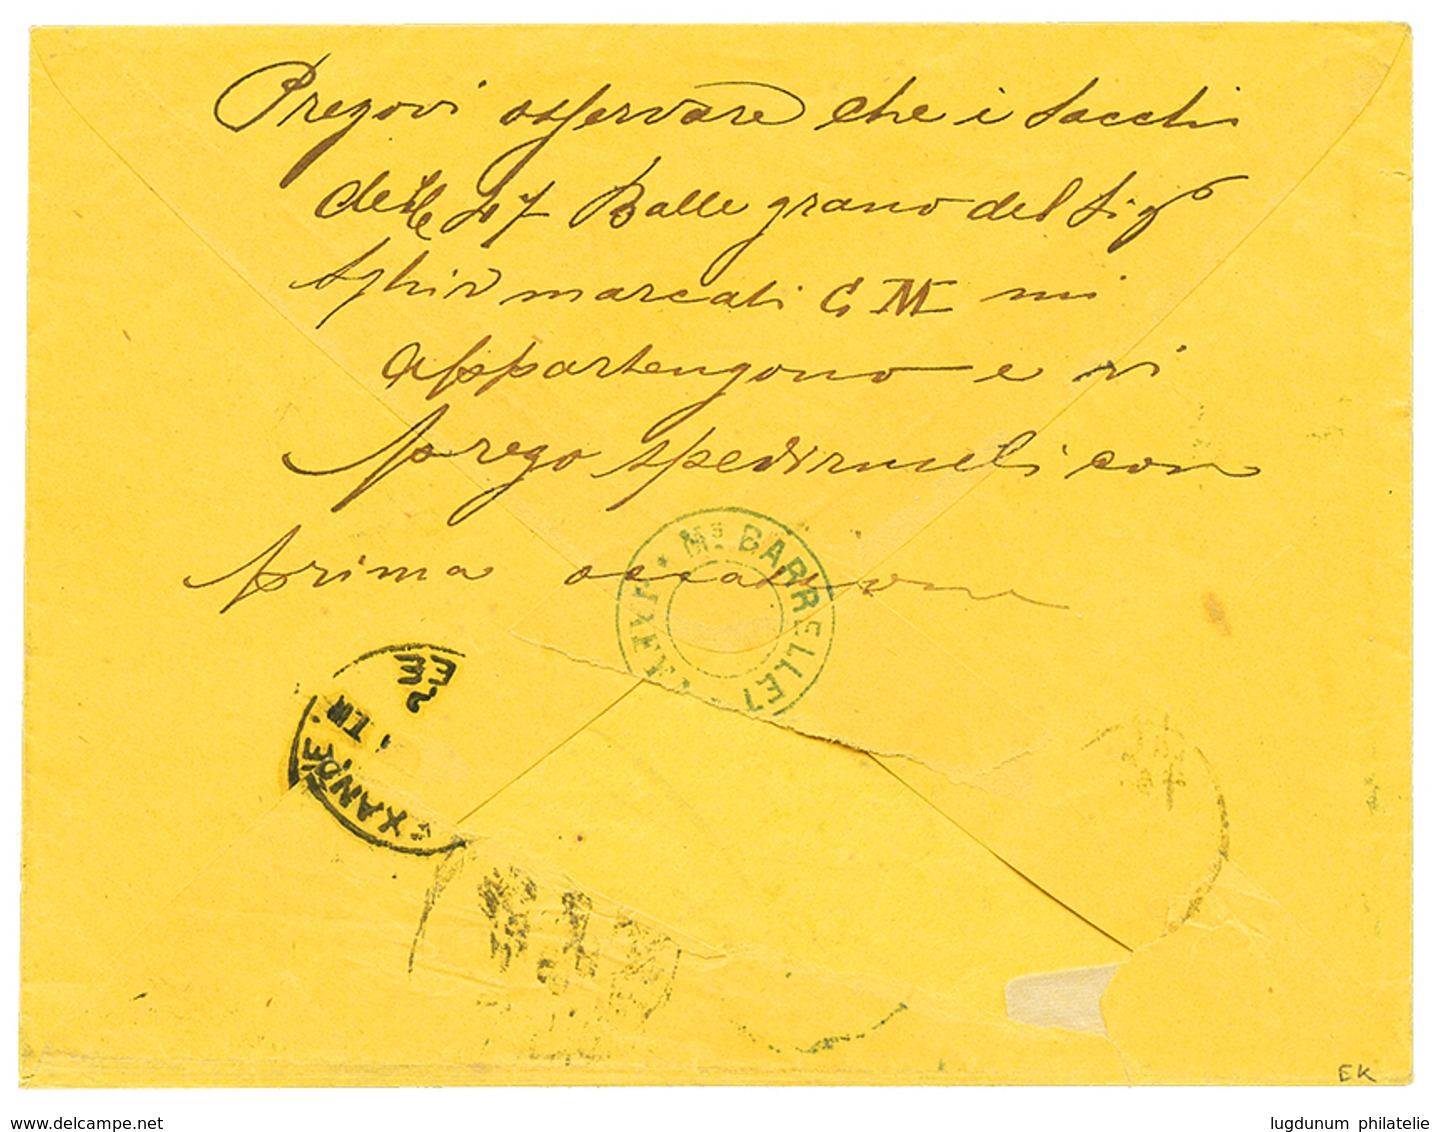 Pregovi osservare che i sacchi
delle 47 Balle grano del Sigr
marcati G M mi
appartengono e vi
prego spedirmeli con
prima occasione
* Ms BARRELLET
EXANDE
EK
www.delcampe.net
lugdunum philatelie